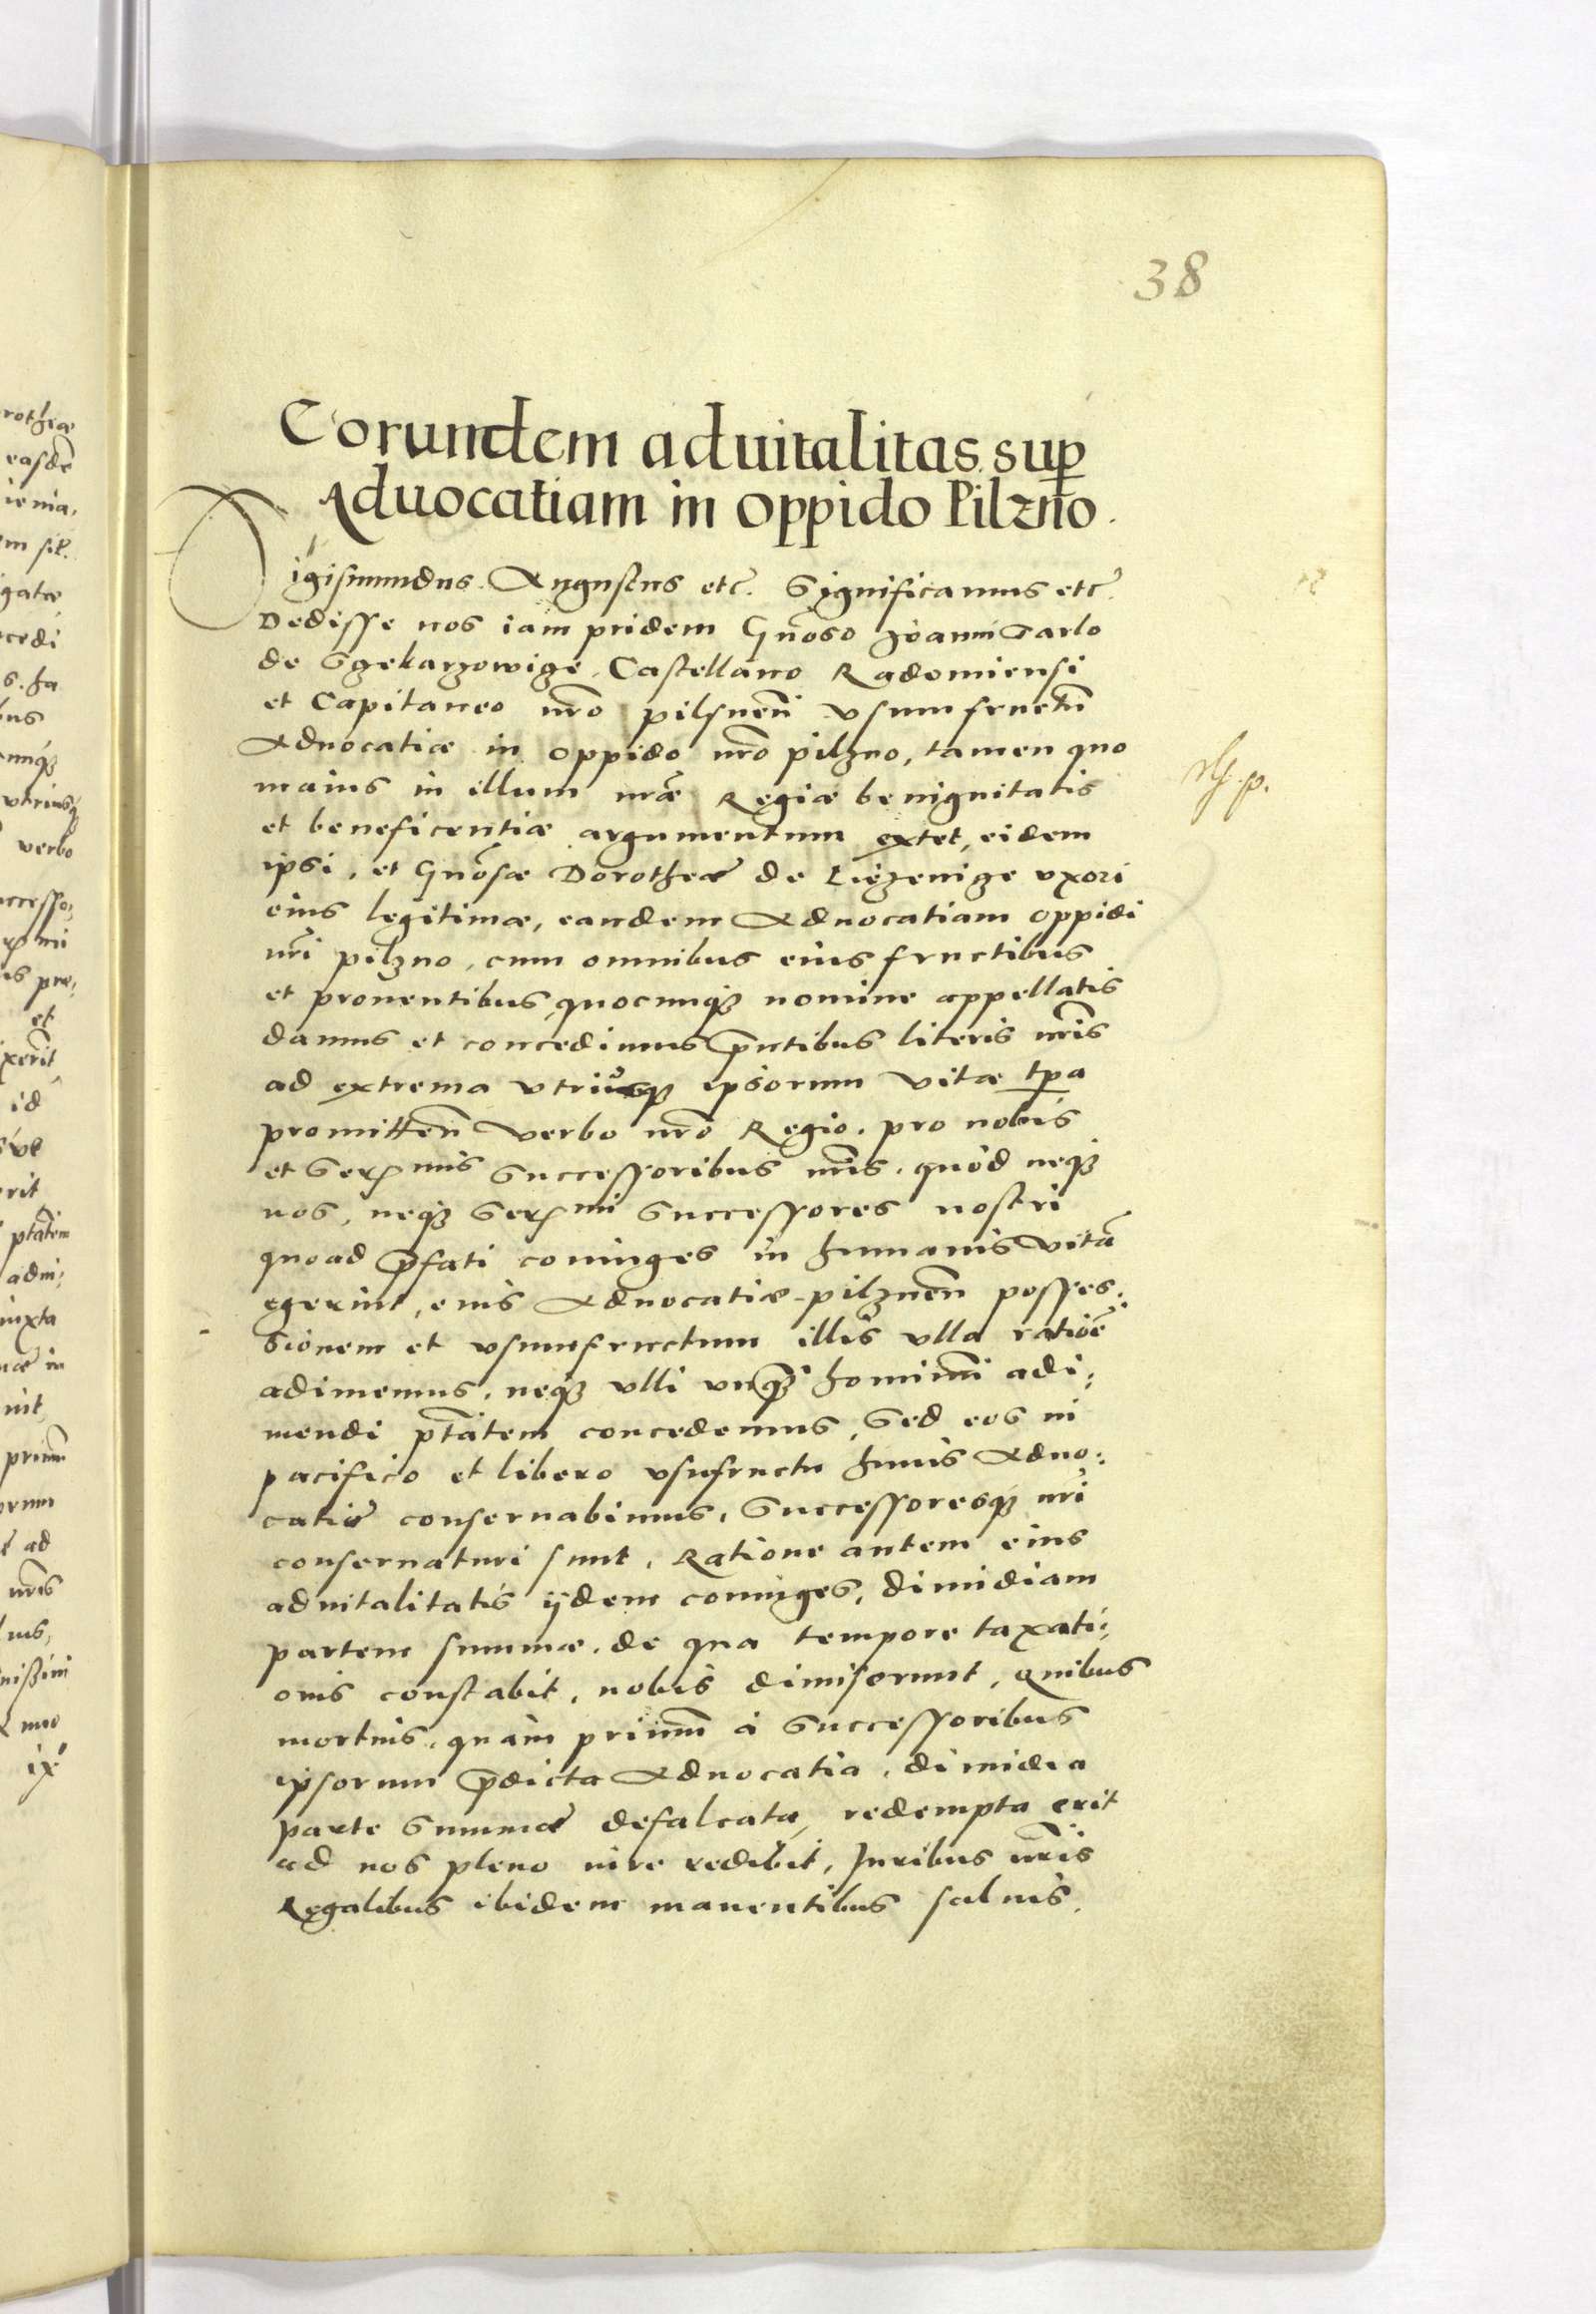 38
Eorundem aduitalitas sup
Aduocatiam in oppido Pilzno.
Sigismundus Augustus etc. Significamus etc.
Dedisse nos iam pridem Gnoso Joanni Tarlo
de Sczekarzowicze Castellano Radomiensi
et Capitaneo nro pilsnen vsumfructu
Aduocatiæ in oppido nro pilzno, tamen quo
maius in illum nræ Regiæ benignitatis
et beneficentiæ argumentum extet, eidem
ipsi, et Gnosæ Dorotheæ de uxori
eius legitimæ, eandem Aduocatiam oppidi
nri pilzno, cum omnibus eius fructibus
et prouentibus quocunq3 nomine appellatis
damus et concedimus pntibus literis nris
ad extrema vtriusq3 ipsorum vitæ tpa
promitten verbo nro Regio, pro nobis
et Ser mis Successoribus nris, quòd neq3
nos, neq3 Ser mi Successores nostri
quoad pfati coniuges in humanis vitã
egerint, eius Aduocatiæ pilznen posses:
sionem et vsumfructum illis vlla ratioe
adimemus, neq3 vlli vnq3 homini adi:
mendi ptatem concedemus, Sed eos in
pacifico et libero vsufructu huius Aduo:
catiæ conseruabimus, Successoresq3 nri
conseruaturi sunt. Ratione autem eius
aduitalitatis ijdem coniuges, dimidiam
partem summæ, de qua tempore taxati:
onis constabit, nobis dimiserunt, Quibus
mortuis, quàm primũ à Successoribus
ipsorum pdicta Aduocatia, dimidia
parte Summæ defalcata, redempta erit
ad nos pleno iure redibit, Juribus nris
Regalibus ibidem manentibus saluis.